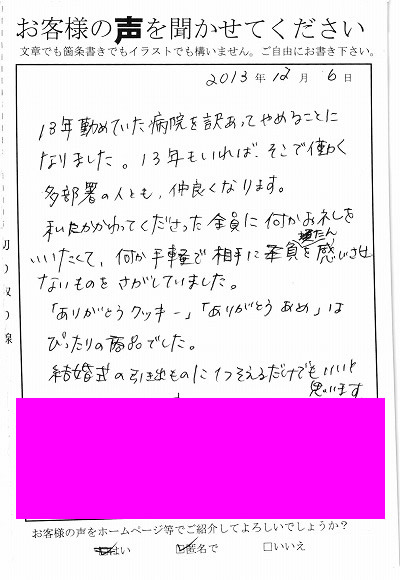 お客様の声を聞かせてください
文章でも箇条書きでもイラストでも構いません。ご自由にお書き下さい。
2013年12月6日
13年勤めていた病院を訳あってやめることに
なりました。13年もいれば、そこで働く
多部署の人とも、仲良くなります。
私にかかわってくださった全員に何かお礼を
いいたくて、何か手軽で相手に負たんを感じさせ
ないものをさがしていました。
「ありがとうクッキー」「ありがとうあめ」は
ぴったりの商品でした。
結婚式の引き出ものに1つそえるだけでもいいと
思います
切り取り線
お客様の声をホームページ等でご紹介してよろしいでしょうか？
はい 匿名で □いいえ